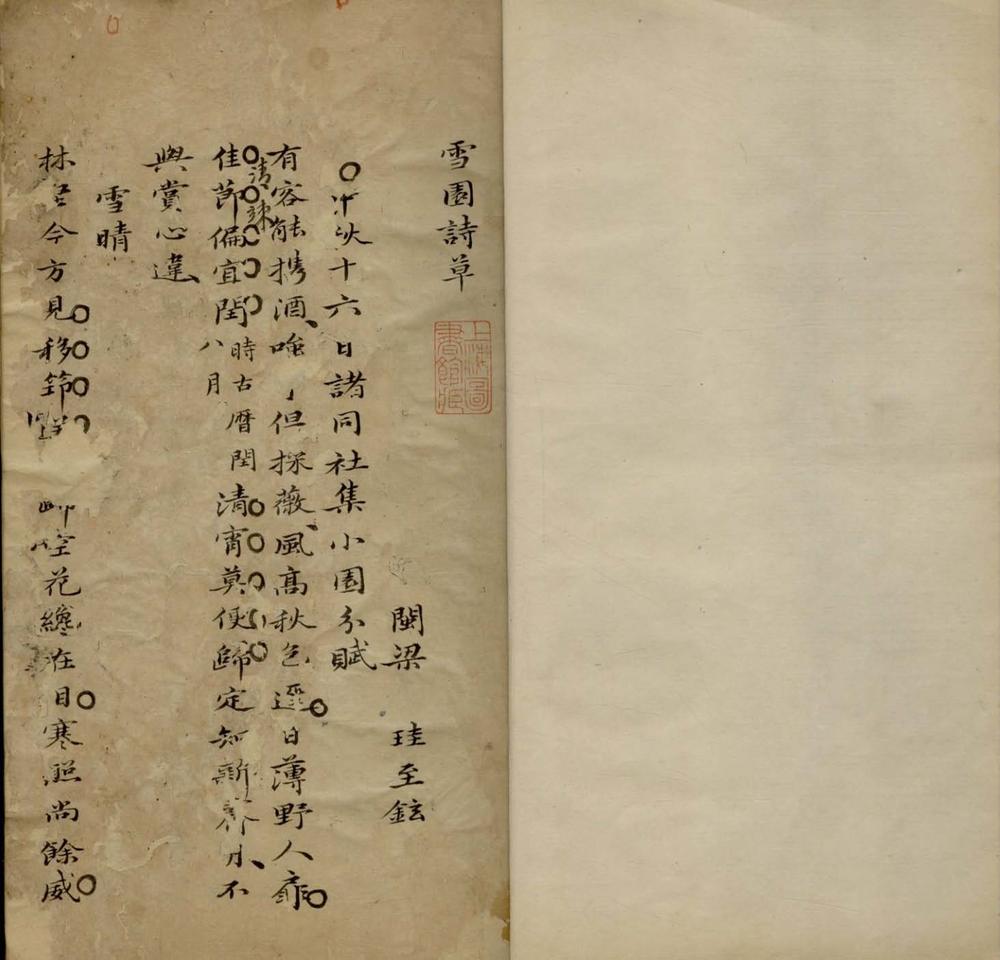 雪園詩草
上海圖書館藏
閩梁 珪至鉉
十六日諸同社集小園分賦
有容能携酒 但採薇風高秋色 日薄野人扉
佳節偏宜閏時古曆閏八月清宵莫便歸定知新 月不
清
與賞心違
雪晴
林 今方見移節 空花纔在目寒照尚餘威